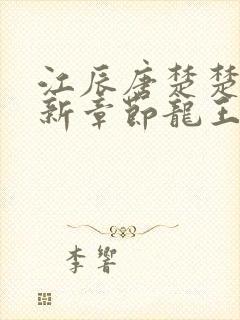 江辰唐楚楚
新章節龍王
李響